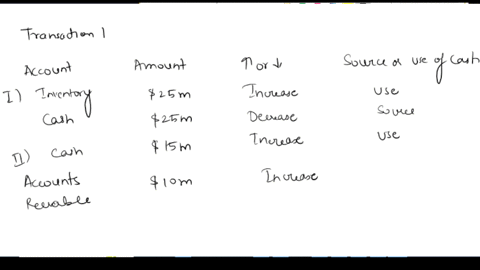 Transaction 1
Account Amount ↑ or ↓ Source or use of Cash
I) Inventory $25m Increase use
Cash $25m Decrease Source
II) Cash $15m Increase use
Accounts $10m Increase
Receivable